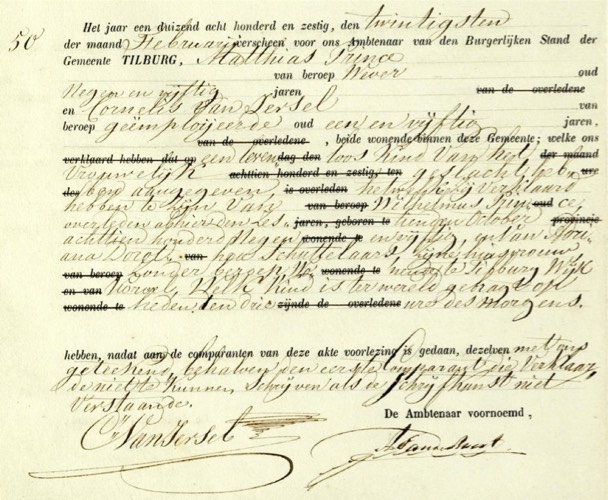 50
Het jaar een duizend acht honderd en zestig, den twintigsten
der maand Februarij verscheen voor ons Ambtenaar van den Burgerlijken Stand der
Gemeente TILBURG, Matthias Prince
van beroep Wever oud
Negen en vijftig jaren van de overledene
en Cornelis Van Iersel van
beroep geëmploijeerde oud een en vijftig jaren,
van de overledene , beide wonende binnen deze Gemeente; welke ons
verklaard hebben dat op een leven dag den loos Kind Van het der maand
Vrouwelijk achttien honderd en zestig, ten geslacht heb ure
des bend aangegeven, is overleden hetwelk zij Verklaard
hebben te zijn Van van beroep Wilhelmus Prin oud ce,
overleden alhier den zes- jaren, geboren te tienden October provincie
achttien honderd Negen wonende te en vijftig, en van Adri
ana van Schellekens, zijne huisvrouw
van beroep zonder beroep, wonende te Tilburg Wijk
en van Kind is ter wereld gebragt op
wonende te heden ten drie zijnde de overledene ure des morgens.
hebben, nadat aan de comparanten van deze akte voorlezing is gedaan, dezelven met ons
geteekend, behalven den eerste Comparant die Verklaar
de niet te Kunnen Schrijven als de Schrijfkunst niet
Verstaande.
De Ambtenaar voornoemd ,
Cs Van Iersel